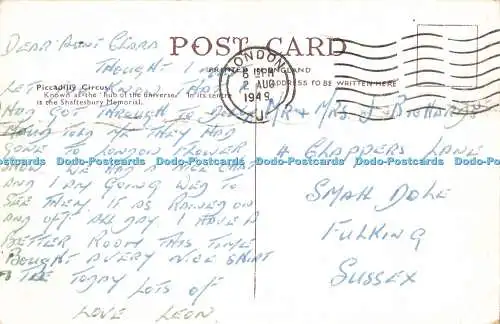 POST CARD
PRINTED IN ENGLAND
ADDRESS TO BE WRITTEN HERE
Piccadilly Circus
Known as the "hub of the universe." In its centre
is the Shaftesbury Memorial.
LONDON
6 PM
2 AUG
1949
DEAR AUNT CLARA
THOUGHT I
LET
HAD GOT THROUGH TO
TOLD ME THEY HAD
GONE TO LONDON FLOWER
SHOW WE HAD A NICE
AND I AM GOING WED TO
SEE THEM. IT AS RAINED ON
AND OFF ALL DAY. I HAVE A
BETTER ROOM THIS TIME
BOUGHT A VERY NICE SHIRT
& TIE TODAY LOTS OF
LOVE LEON.
MR & MRS J
4 CLAPPERS LANE
SMALL DOLE
FULKING
SUSSEX
Dodo-Postcards Dodo-Postcards Dodo-Postcards Dodo-Postcards Dodo-Postcards